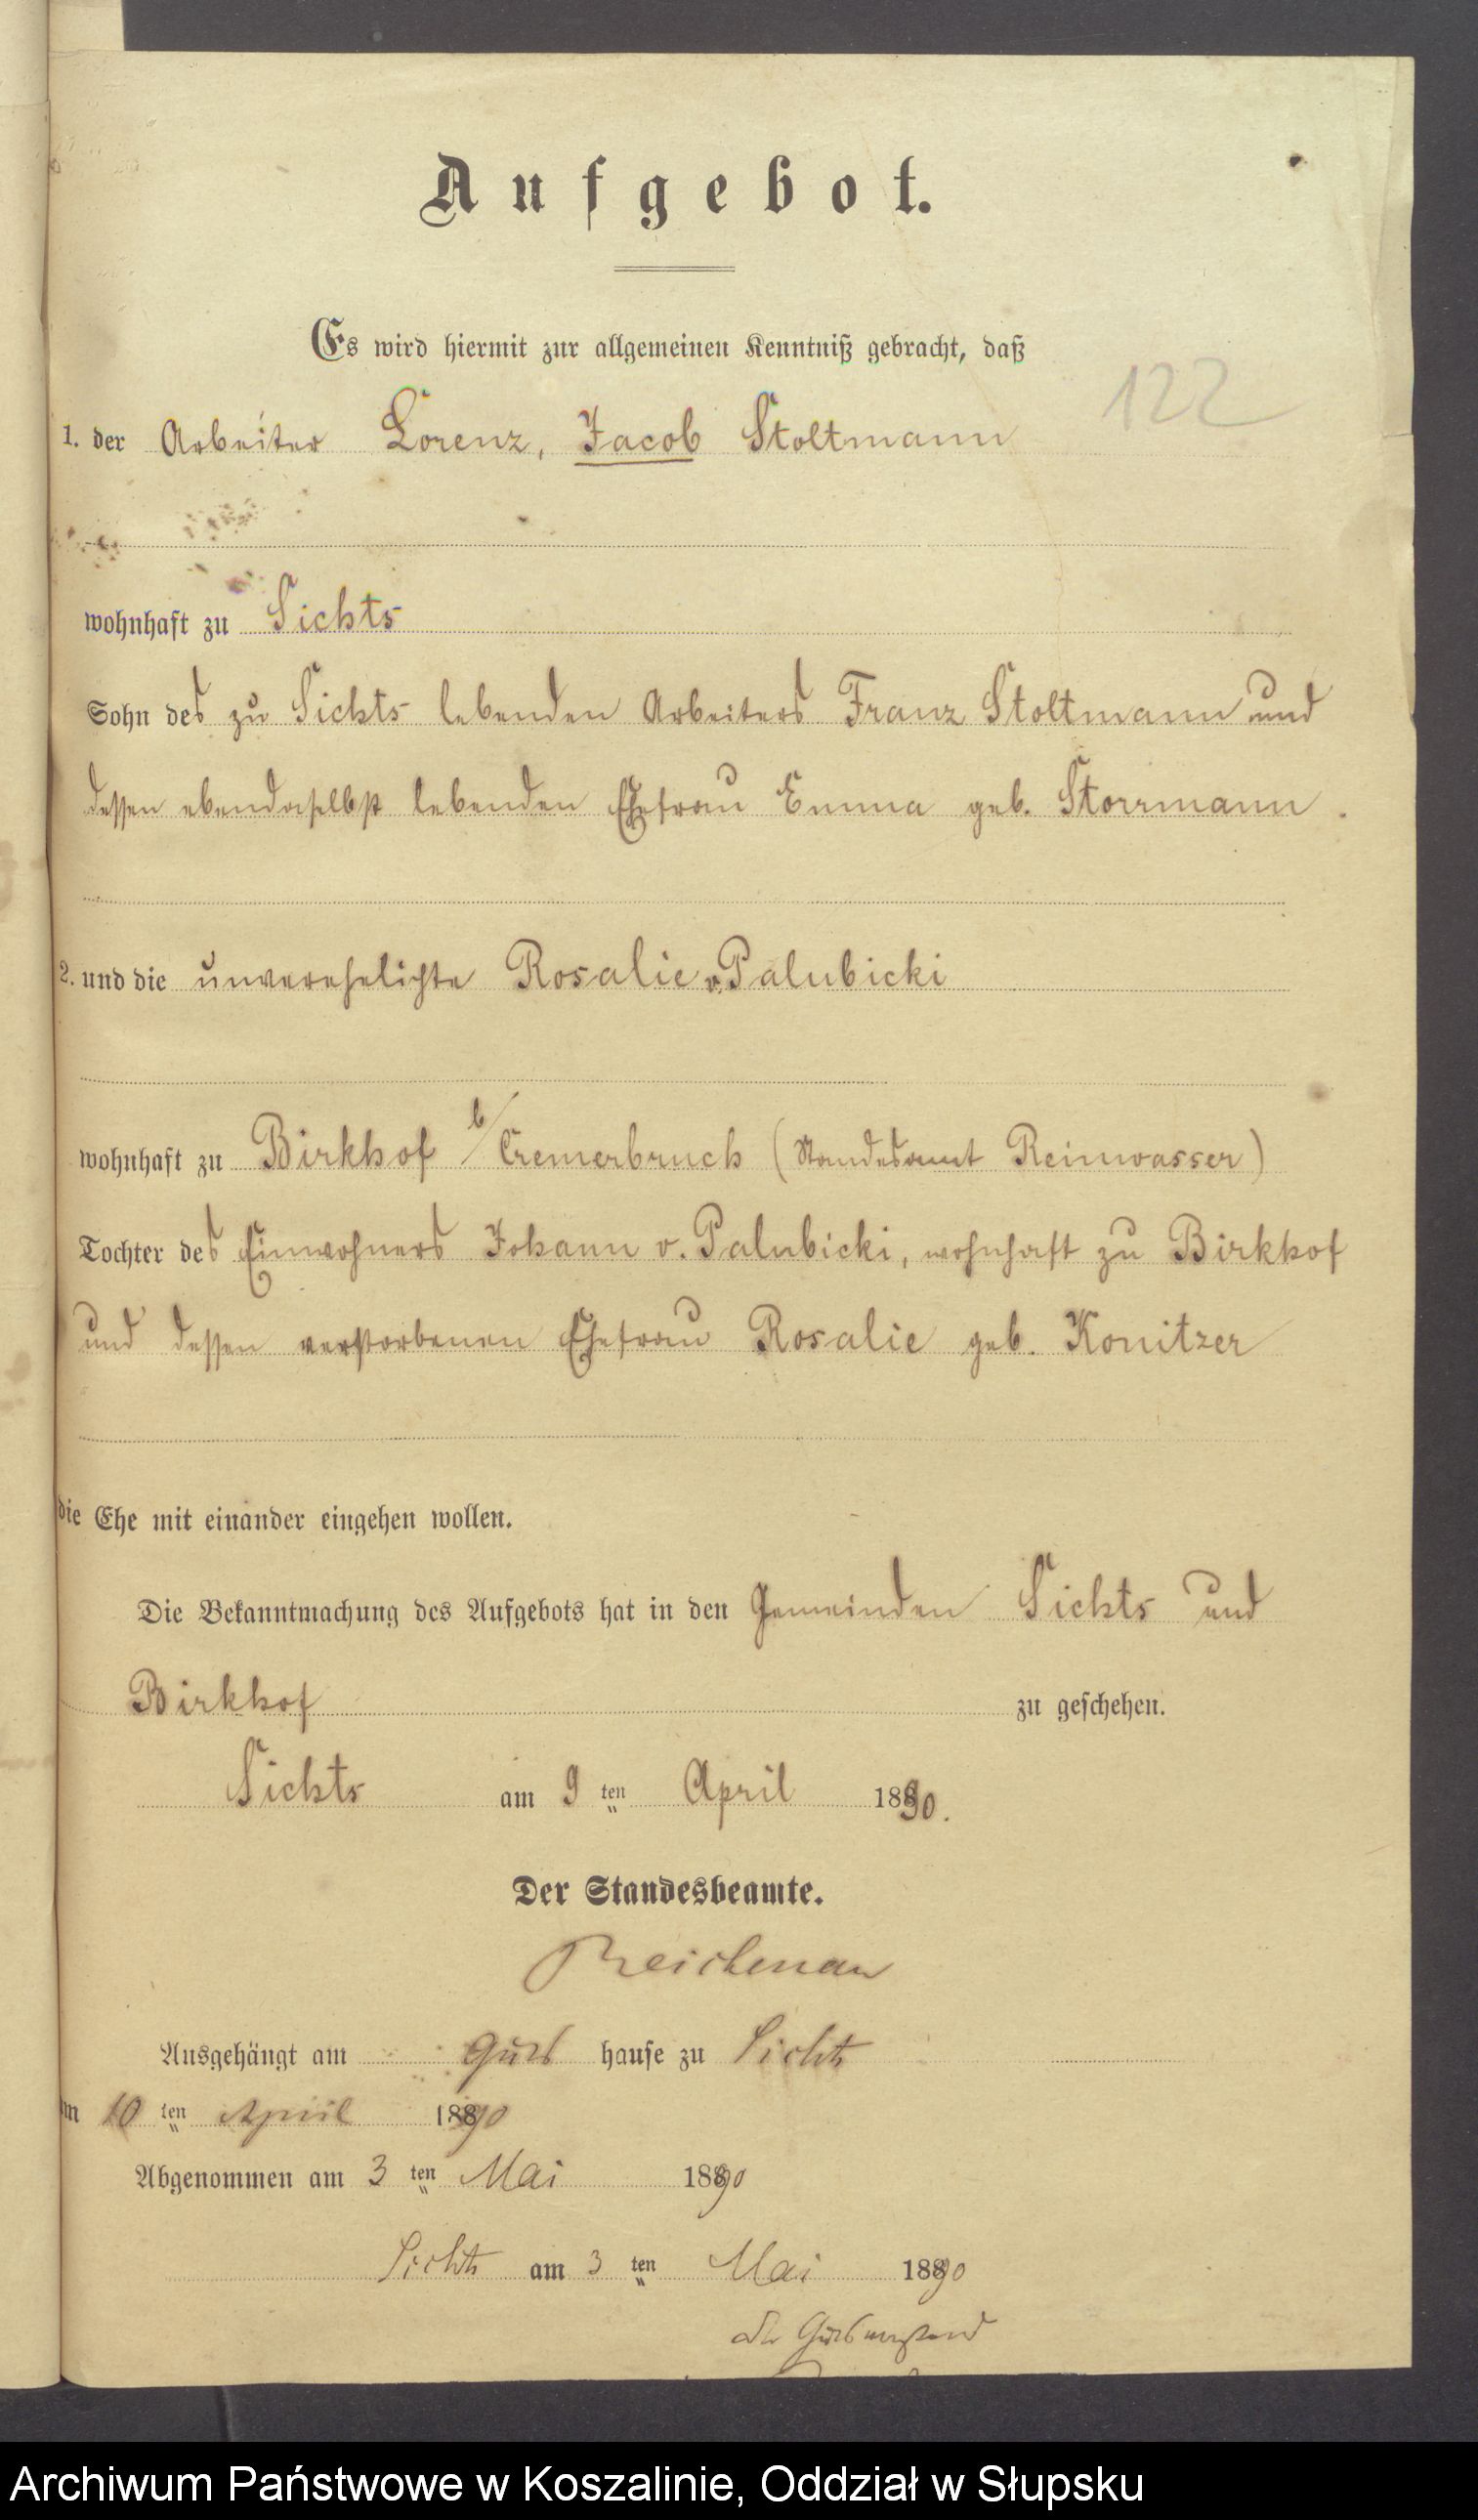 Aufgebot.
Es wird hiermit zur allgemeinen Kenntniß gebracht, daß
122
1. der Arbeiter Lorenz, Jacob Stoltmann
wohnhaft zu Sichts
Sohn des zu Sichts lebenden Arbeiters Franz Stoltmann und
dessen ebendaselbst lebenden Ehefrau Emma geb. Storrmann.
2. und die unverehelichte Rosalie v. Palubicki
wohnhaft zu Birkhof b/ Cremerbruch (Standesamt Reinwasser)
Tochter des Einwohners Johann v. Palubicki, wohnhaft zu Birkhof
und dessen verstorbenen Ehefrau Rosalie geb. Konitzer
die Ehe mit einander eingehen wollen.
Die Bekanntmachung des Aufgebots hat in den Gemeinden Sichts und
Birkhof zu geschehen.
Sichts am 9 ten April 1890.
Der Standesbeamte.
Ausgehängt am Guts hause zu Sichts
m 10 ten April 1890
Abgenommen am 3 ten Mai 1890
Sichts am 3 ten Mai 1890
Der Gutsvorstand
Archiwum Państwowe w Koszalinie, Oddział w Słupsku